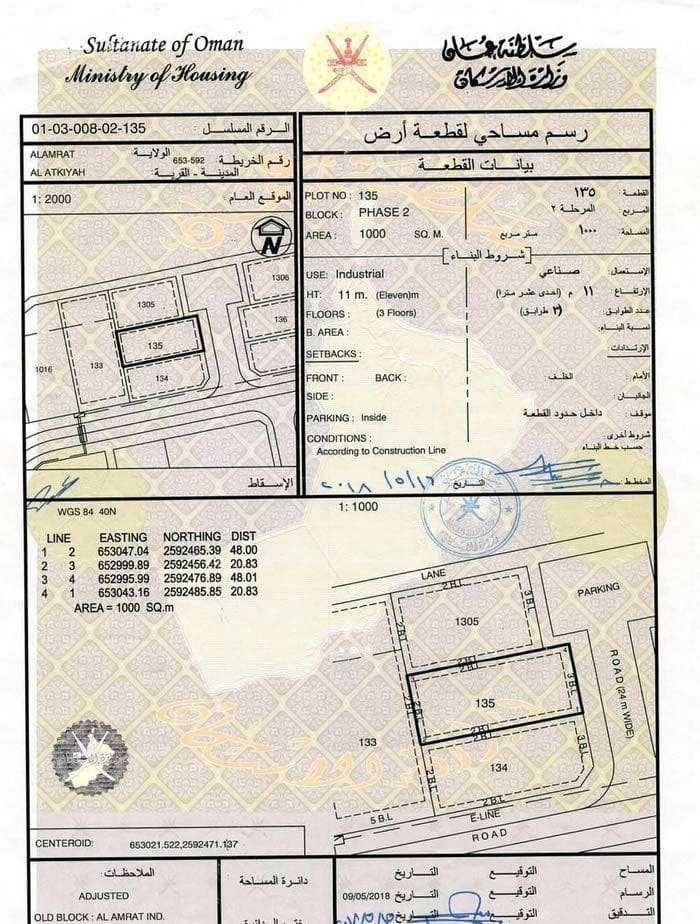 Sultanate of Oman
Ministry of Housing
سلطنة عمان
وزارة الإسكان
01-03-008-02-135 الرقم المسلسل :
ALAMRAT الولاية:
AL ATKIYAH المدينة - القرية
653-592 رقم الخريطة :
1: 2000 الموقع العام :
N
1306
1305
136
135
133
134
1016
الإسقاط
رسم مساحي لقطعة أرض
بيانات القطعة
PLOT NO : 135 ١٣٥ القطعة :
BLOCK : PHASE 2 المرحلة ٢ المربع :
AREA : 1000 SQ. M. متر مربع ١٠٠٠ المساحة:
[شروط البناء]
USE: Industrial صناعي الإستعمال:
HT: 11 m. (Eleven)m (احدى عشر مترا) م ١١ الإرتفاع:
FLOORS : (3 Floors) (٣ طوابق) عدد الطوابق:
B. AREA : نسبة البناء:
SETBACKS : الإرتدادات:
FRONT : BACK : الخلف : الأمام :
SIDE : الجانبان :
PARKING : Inside داخل حدود القطعة موقف :
CONDITIONS : شروط أخرى:
According to Construction Line حسب خط البناء
التاريخ : المخطط:
WGS 84 40N
1: 1000
LINE EASTING NORTHING DIST
1 2 653047.04 2592465.39 48.00
2 3 652999.89 2592456.42 20.83
3 4 652995.99 2592476.89 48.01
4 1 653043.16 2592485.85 20.83
AREA = 1000 SQ.m
LANE
2 B.L
PARKING
1305
2 B.L
3 B.L
2 B.L
2 B.L
135
2 B.L
3 B.L
ROAD (24 m WIDE)
2 B.L
2 B.L
133
134
3 B.L
2 B.L
5 B.L
E-LINE
ROAD
CENTEROID: 653021.522,2592471.137
الملاحظات:
ADJUSTED
OLD BLOCK : AL AMRAT IND.
دائرة المساحة
التاريخ التوقيع المساح
09/05/2018 التاريخ التوقيع الرسام
التاريخ التوقيع التدقيق